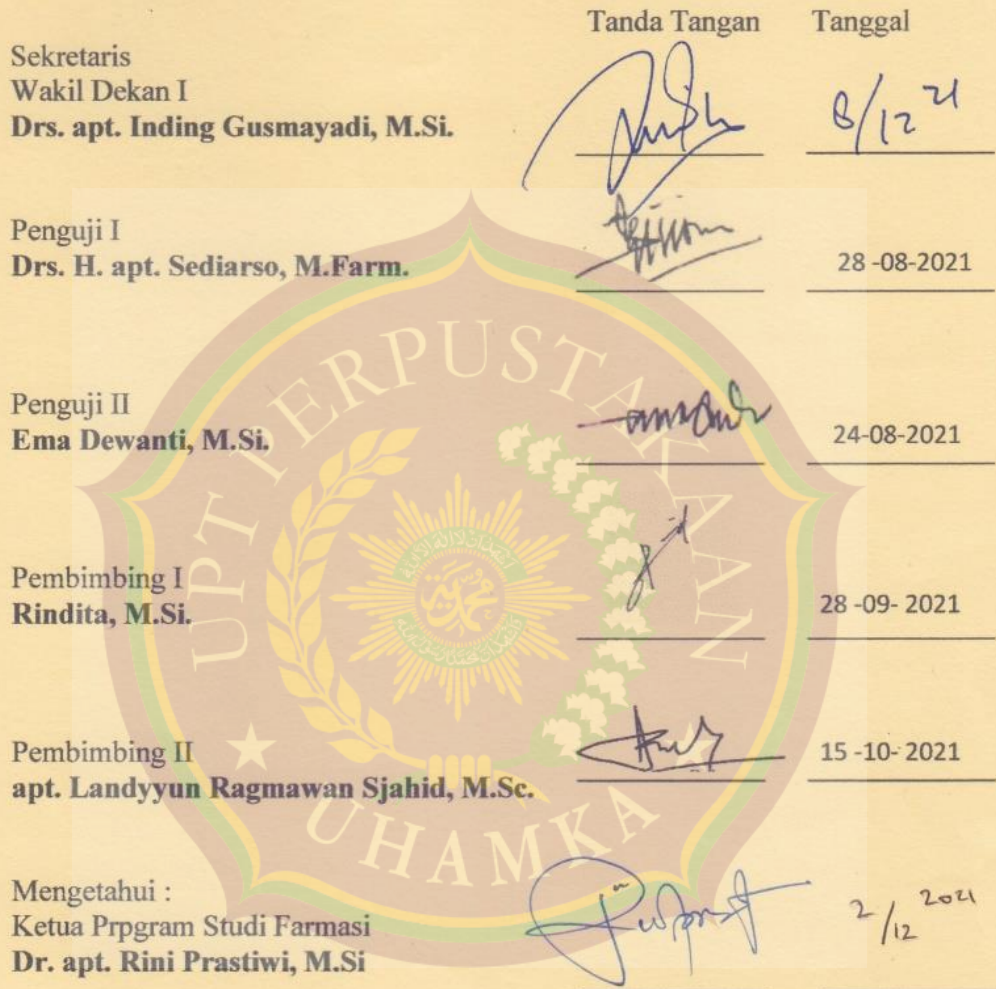 Tanda Tangan Tanggal
Sekretaris
Wakil Dekan I
Drs. apt. Inding Gusmayadi, M.Si.
8/12 21
Penguji I
Drs. H. apt. Sediarso, M.Farm.
28 -08-2021
Penguji II
Ema Dewanti, M.Si.
24-08-2021
Pembimbing I
Rindita, M.Si.
28 -09- 2021
Pembimbing II
apt. Landyyun Ragmawan Sjahid, M.Sc.
15 -10- 2021
Mengetahui :
Ketua Prpgram Studi Farmasi
Dr. apt. Rini Prastiwi, M.Si
2/12 2021
UPT PERPUSTAKAAN
UHAMKA